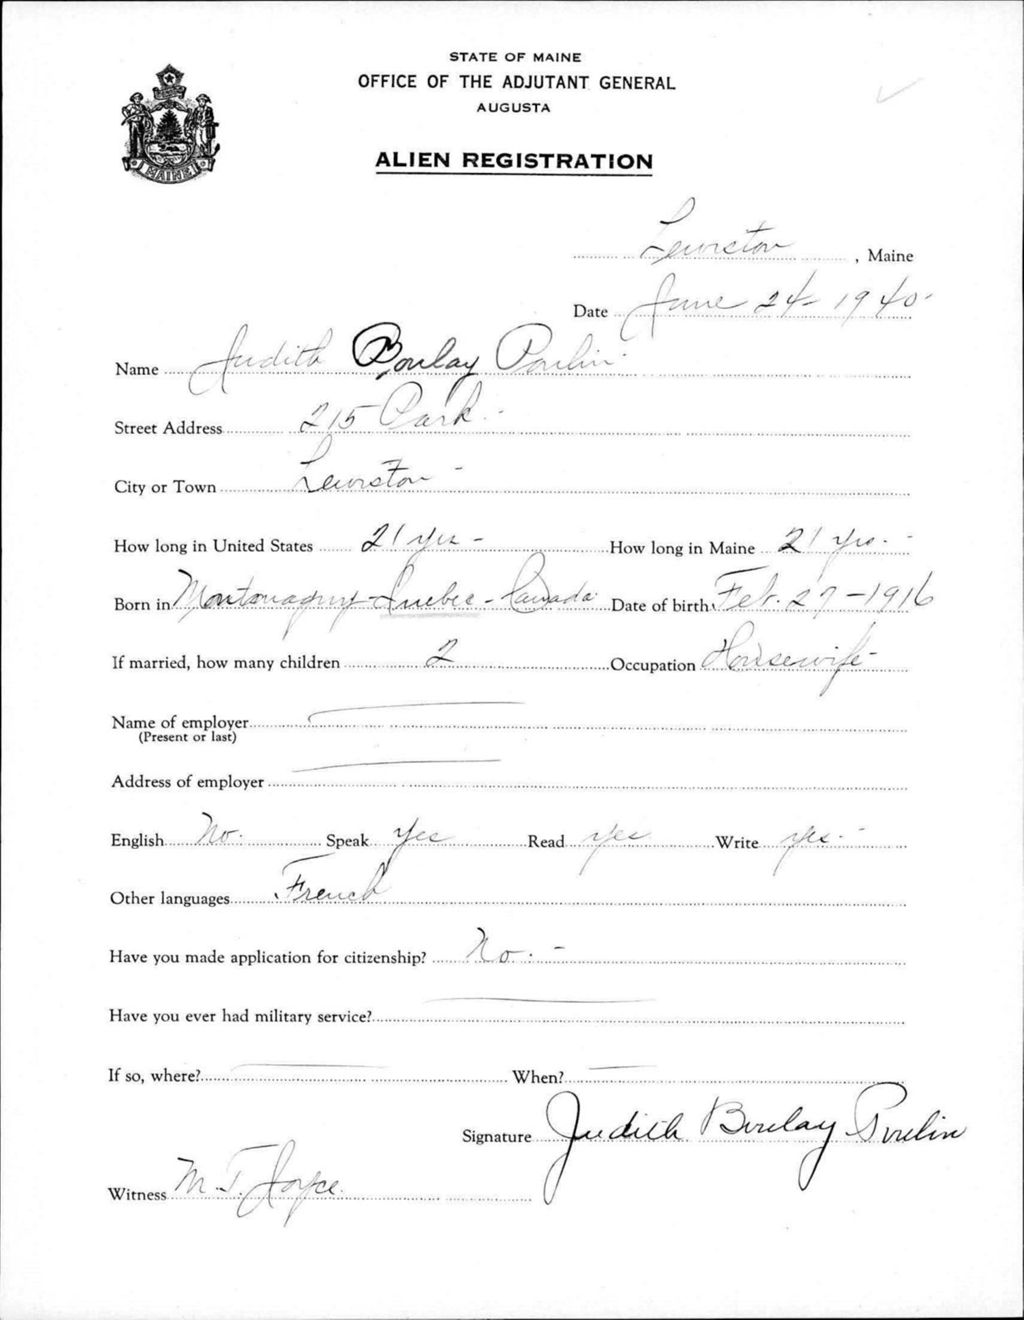 STATE OF MAINE
OFFICE OF THE ADJUTANT GENERAL
AUGUSTA
MAINE
ALIEN REGISTRATION
Lewiston, Maine
Date June 24 - 1940 -
Name Judith Boulay Poulin
Street Address 215 Park -
City or Town Lewiston -
How long in United States 21 yrs - How long in Maine 21 yrs. -
Born in Montmagny - Quebec - Canada Date of birth Feb. 27 - 1916
If married, how many children 2 Occupation Housewife -
Name of employer
(Present or last)
Address of employer
English No. Speak Yes Read yes Write yes. -
Other languages French
Have you made application for citizenship? No. -
Have you ever had military service?
If so, where? When?
Signature Judith Boulay Poulin
Witness M. T. Joyce.